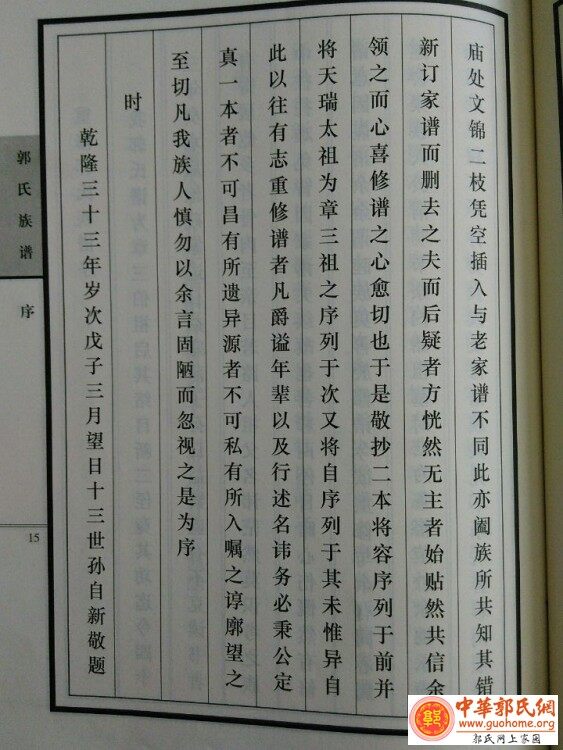 庙处文锦二枝凭空插入与老家谱不同此亦阖族所共知其错
新订家谱而删去之夫而后疑者方恍然无主者始贴然共信余
领之而心喜修谱之心愈切也于是敬抄二本将容序列于前并
将天瑞太祖为章三祖之序列于次又将自序列于其未惟异自
此以往有志重修谱者凡爵谥年辈以及行述名讳务必秉公定
真一本者不可昌有所遗异源者不可私有所入嘱之谆廓望之
至切凡我族人慎勿以余言固陋而忽视之是为序
时
乾隆三十三年岁次戊子三月望日十三世孙自新敬题
郭氏族谱
序
15
中華郭氏網
www.guohome.org
郭氏网上家园